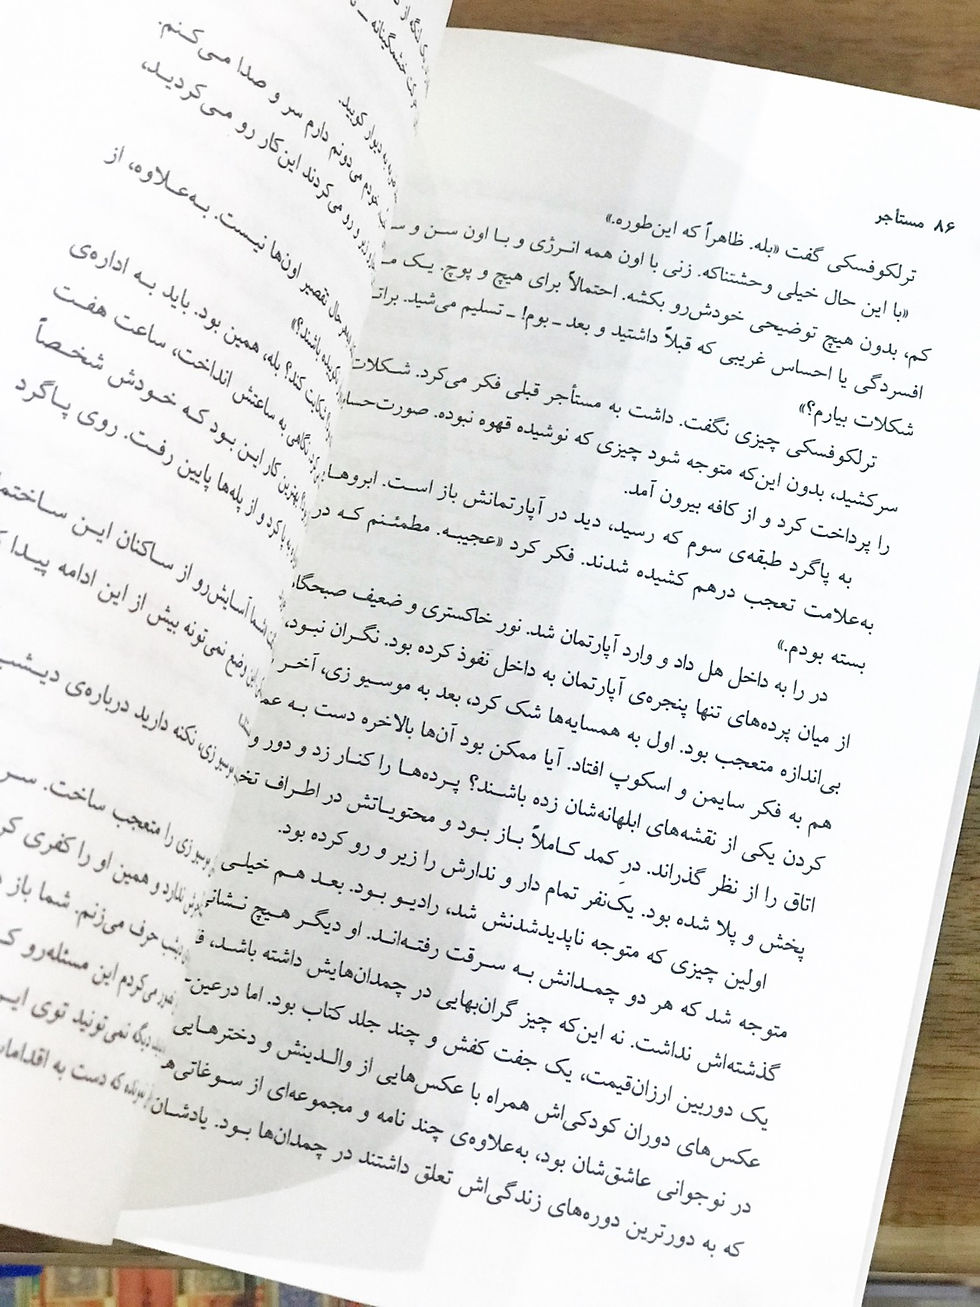 ۸۶ مستأجر
ترلکوفسکی گفت «بله. ظاهراً که این‌طوره.»
«با این حال خیلی وحشتناکه. زنی با اون همه انرژی و با اون سن و
کم، بدون هیچ توضیحی خودش‌رو بکشه. احتمالاً برای هیچ و پوچ. یک
افسردگی یا احساس غریبی که قبلاً داشتید و بعد ـ بوم! ـ تسلیم می‌شید.
شکلات بیارم؟»
ترلکوفسکی چیزی نگفت. داشت به مستأجر قبلی فکر می‌کرد. شکلات
سرکشید، بدون این‌که متوجه شود چیزی که نوشیده قهوه نبوده.
را پرداخت کرد و از کافه بیرون آمد.
به پاگرد طبقه‌ی سوم که رسید، دید در آپارتمانش باز است. ابروها
به‌علامت تعجب درهم کشیده شدند. فکر کرد «عجیبه. مطمئنم که در
بسته بودم.»
در را به داخل هل داد و وارد آپارتمان شد. نور خاکستری و ضعیف
از میان پرده‌های تنها پنجره‌ی آپارتمان به داخل نفوذ کرده بود. نگران نبود،
بی‌اندازه متعجب بود. اول به همسایه‌ها شک کرد، بعد به موسیو زی، آخر
هم به فکر سایمن و اسکوپ افتاد. آیا ممکن بود آن‌ها بالاخره دست به
کردن یکی از نقشه‌های ابلهانه‌شان زده باشند؟ پرده‌ها را کنار زد و دور و
اتاق را از نظر گذراند. درِ کمد کاملاً باز بود و محتویاتش در اطراف
پخش و پلا شده بود. یک‌نفر تمام دار و ندارش را زیر و رو کرده بود.
اولین چیزی که متوجه ناپدیدشدنش شد، رادیو بود. بعد هم خیلی
متوجه شد که هر دو چمدانش به سرقت رفته‌اند. او دیگر هیچ
گذشته‌اش نداشت. نه این‌که چیز گران‌بهایی در چمدان‌هایش داشته باشد،
یک دوربین ارزان‌قیمت، یک جفت کفش و چند جلد کتاب بود. اما درعین
عکس‌های دوران کودکی‌اش همراه با عکس‌هایی از والدینش و دخترهایی
در نوجوانی عاشق‌شان بود، به‌علاوه‌ی چند نامه و مجموعه‌ای از
که به دورترین دوره‌های زندگی‌اش تعلق داشتند در چمدان‌ها بود.
به دیوار کوبید.
خودم می‌دونم دارم سر و صدا می‌کنم.
رو می‌کردند این‌کار رو می‌کردید،
حال تقصیر اون‌ها نیست. به‌علاوه، از
کوبیده باشند؟»
شکایت کند؟ بله، همین بود. باید به اداره‌ی
نگاهی به ساعتش انداخت، ساعت هفت
بهترین کار این بود که خودش شخصاً
و از پله‌ها پایین رفت. روی پاگرد
شما آسایش‌رو از ساکنان این
این وضع نمی‌تونه بیش از این ادامه پیدا
زی، نکنه دارید درباره‌ی
زی را متعجب ساخت.
ندارد و همین او را کفری
حرف می‌زنم. شما باز
می‌کردم این مسئله‌رو
دیگه نمی‌تونید توی
که دست به